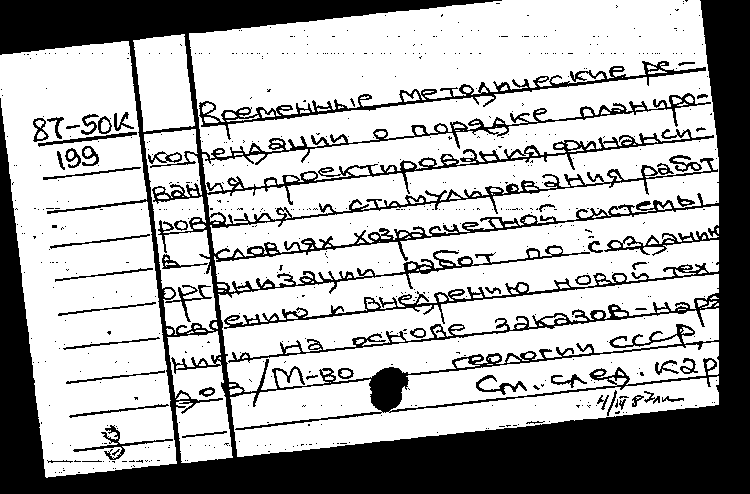 87-50К
199
Временные методические ре-
комендации о порядке планиро-
вания, проектирования, финанси-
рования и стимулирования работ
в условиях хозрасчетной системы
организации работ по созданию
освоению и внедрению новой тех-
ники на основе заказов-наря
дов/М-во геологии СССР,
См. след. кар